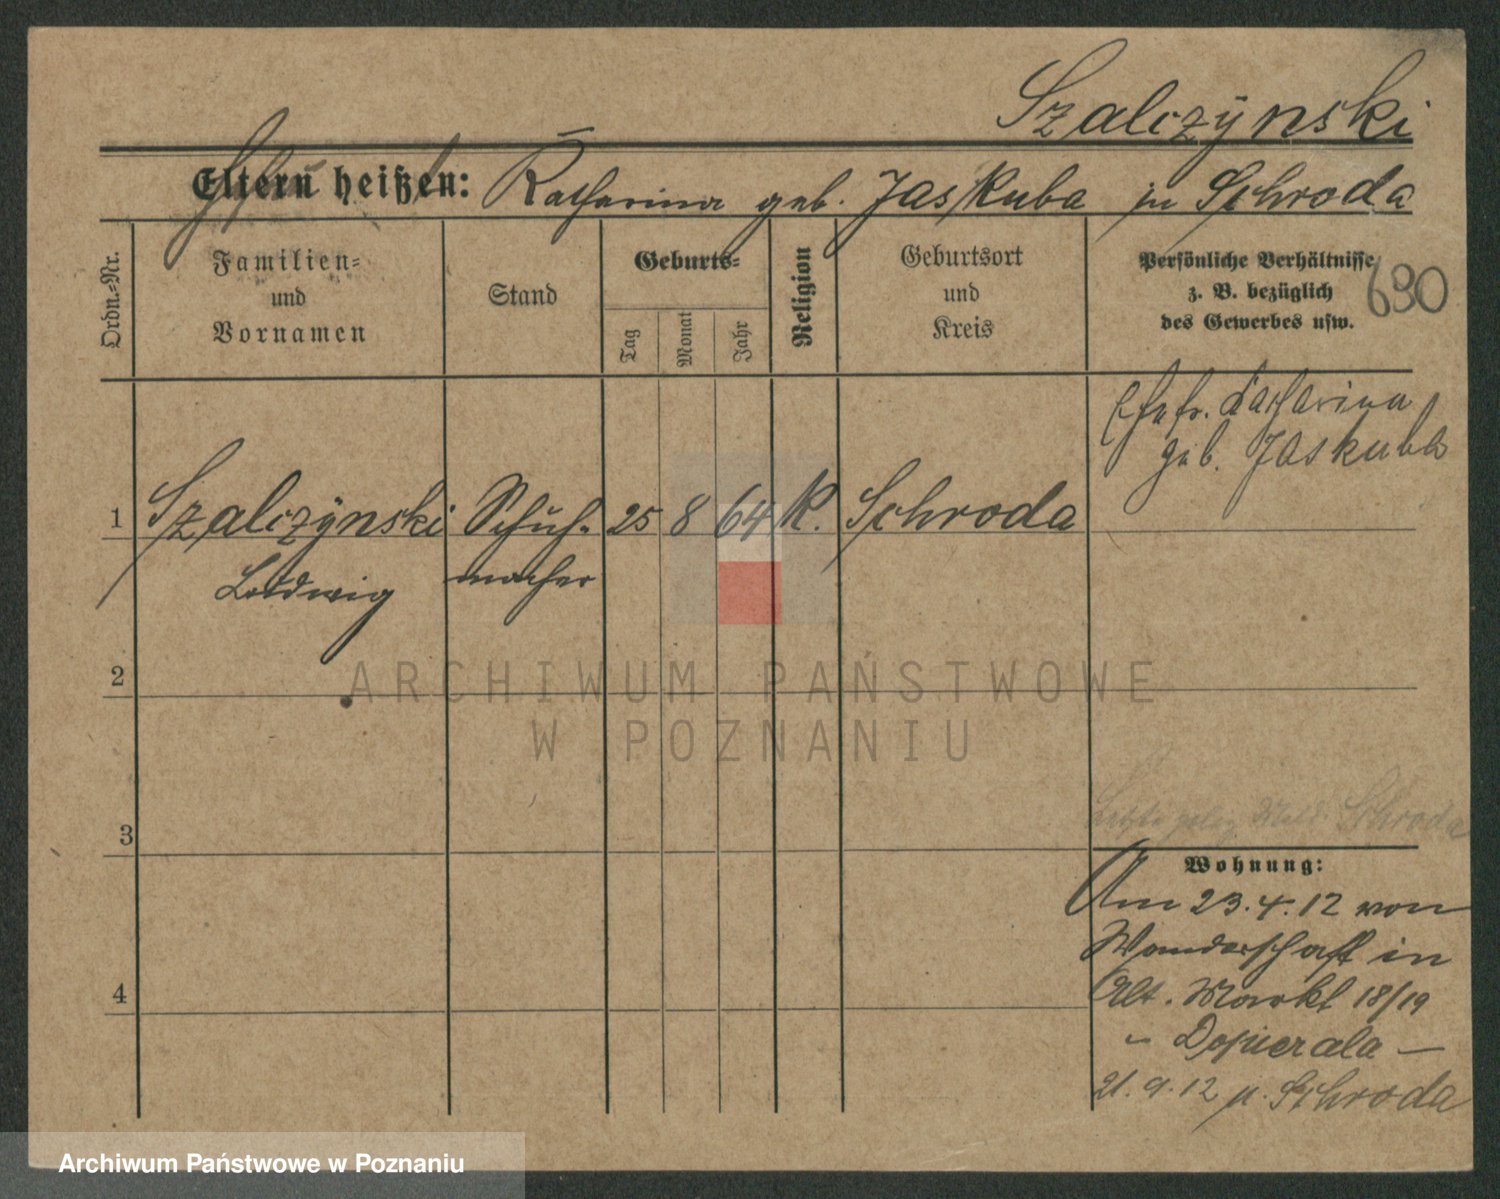 Szalczÿnski
Eltern heißen: Katharina geb. Jaskuba in Schroda
Ordn.-Nr.
Familien-
und
Vornamen
Stand
Geburts-
Tag
Monat
Jahr
Religion
Geburtsort
und
Kreis
Persönliche Verhältnisse
z. B. bezüglich
des Gewerbes usw.
690
Ehefr. Katharina
geb. Jaskuba
1 Szalczÿnski Schuh- 25 8 64 K. Schroda
Ludwig macher
2
ARCHIWUM PAŃSTWOWE
W POZNANIU
3
Schroda
Wohnung:
Am 23.4.12 von
Wanderschaft in
Alt. Markt 18/19
- Dopierala -
21.9.12 n. Schroda
4
Archiwum Państwowe w Poznaniu